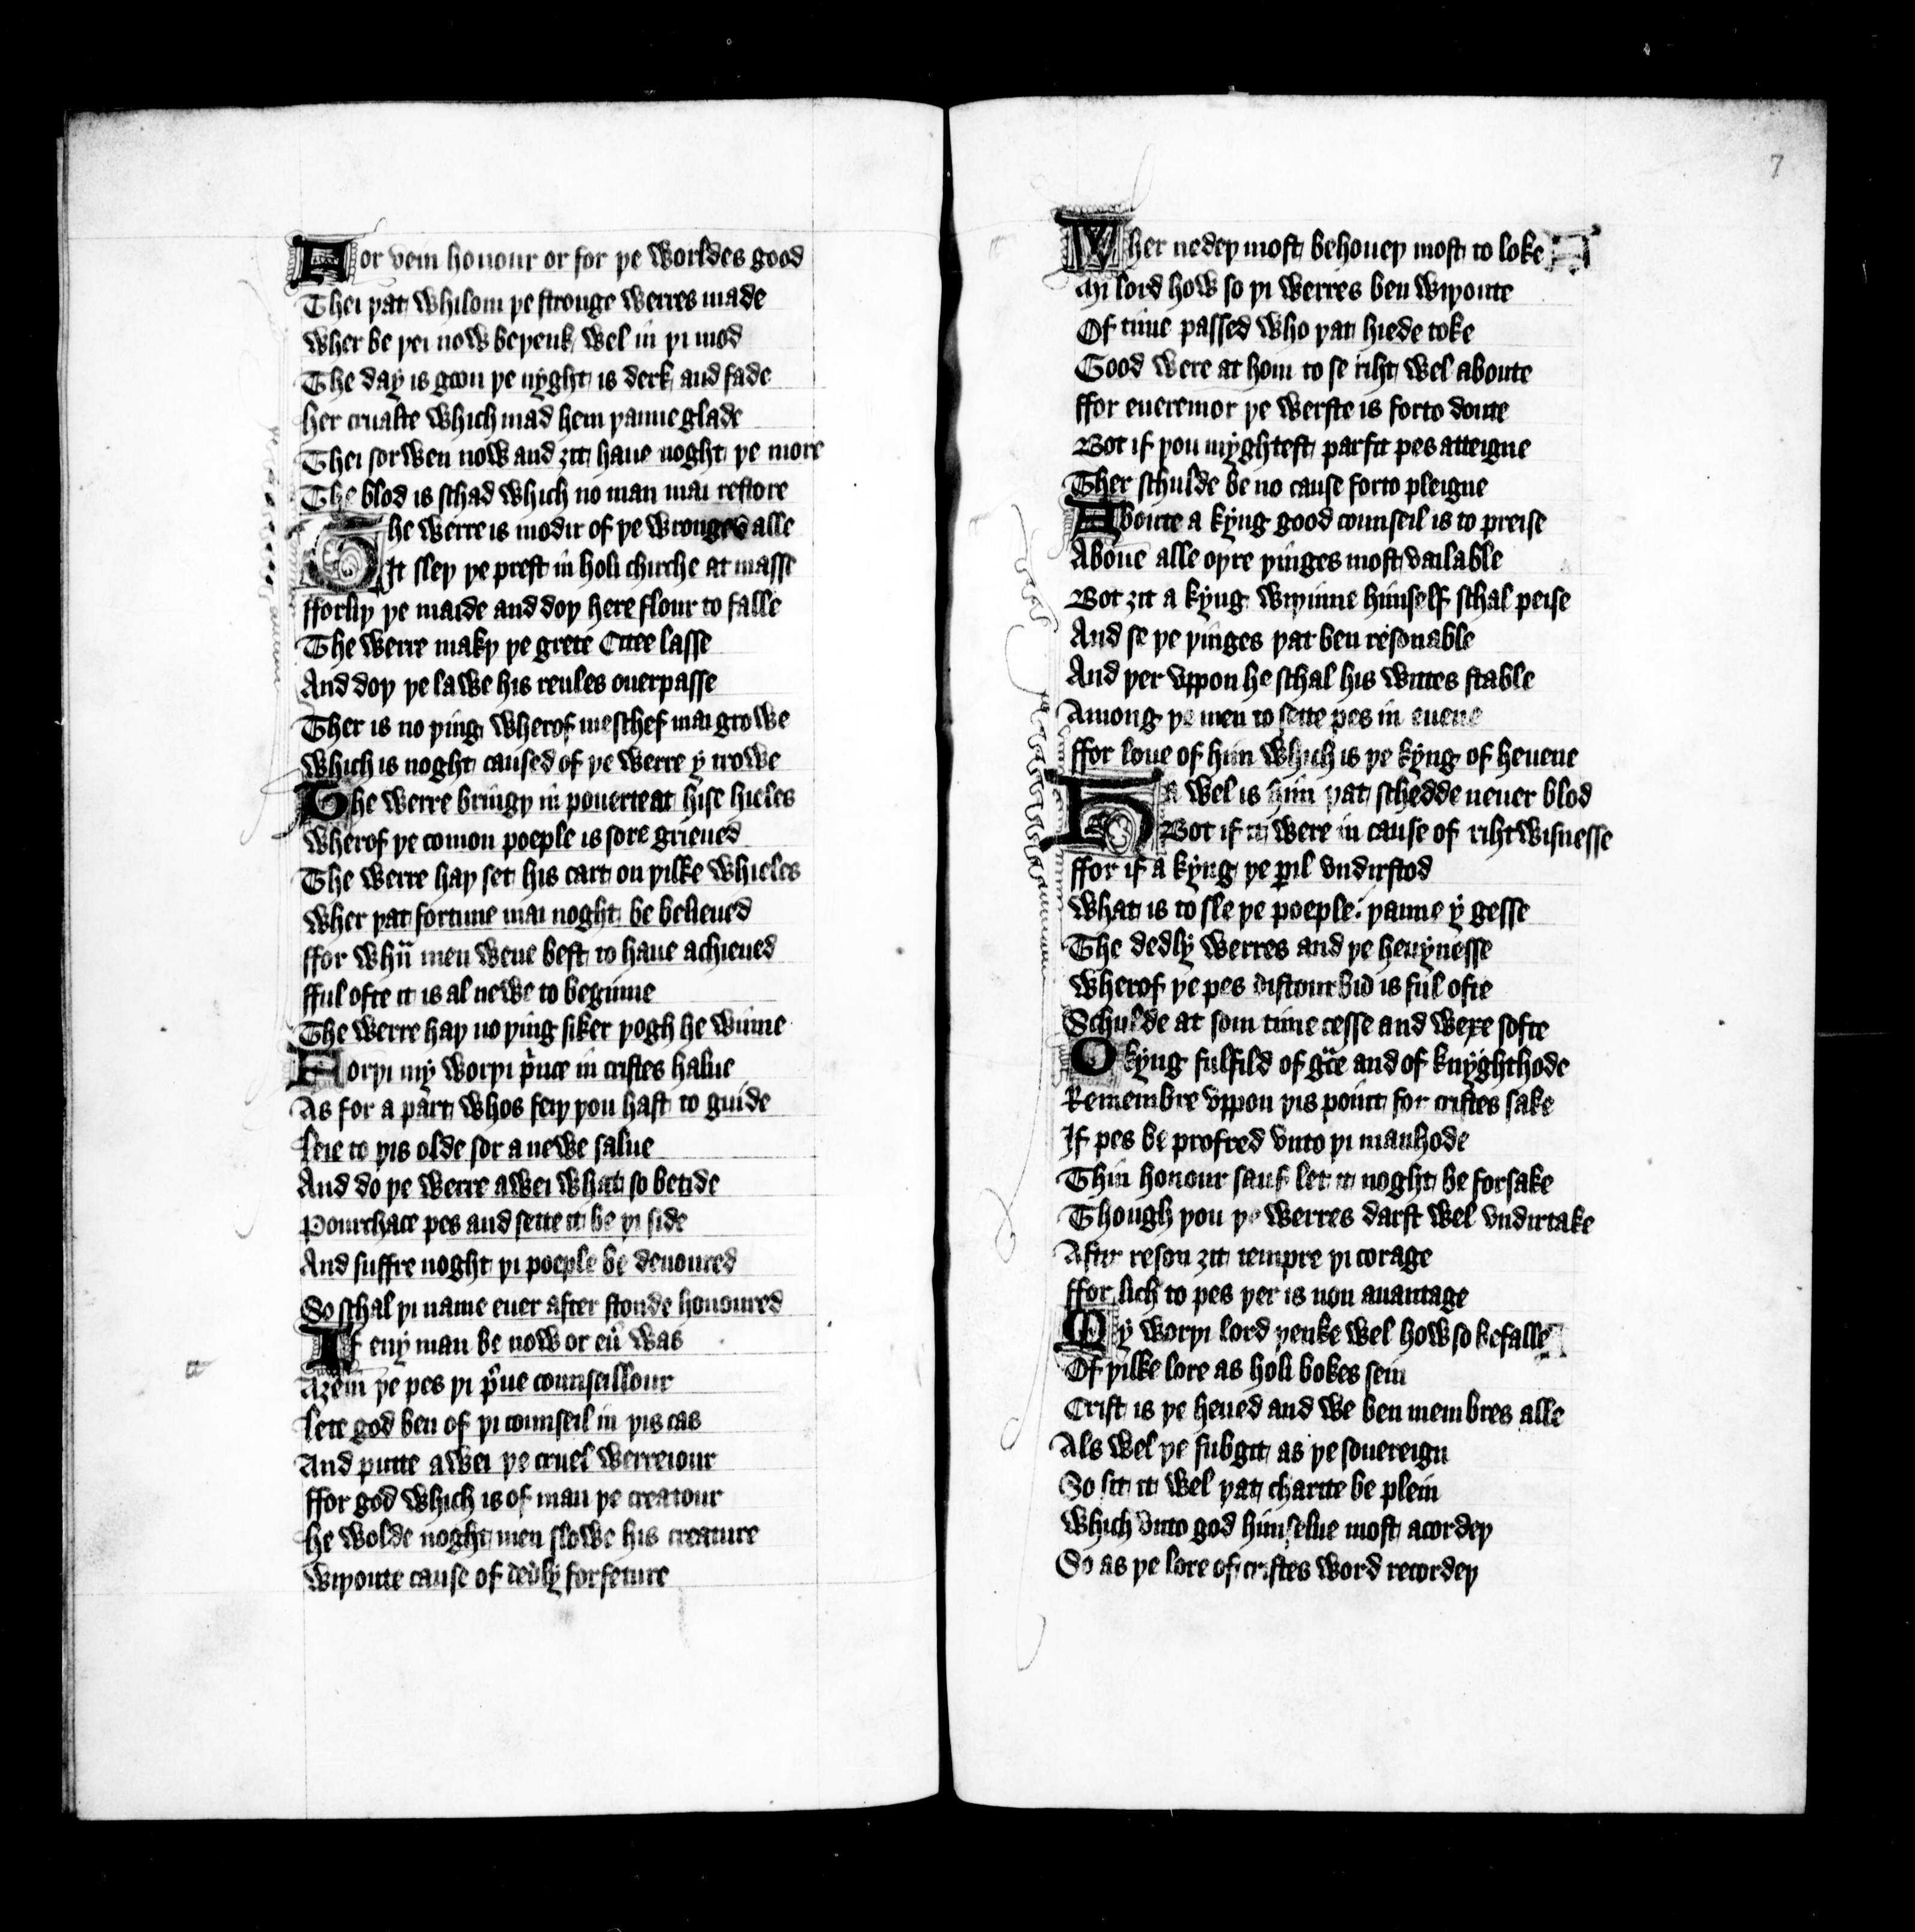 For vein honour or for þe worldes good
Thei þat whilom þe stronge werres made
Wher be þei now beþenk wel in þi mod
The day is goon þe nyght is derk and fade
Her crualte which mad hem þanne glade
Thei sorwen now and ȝit haue noght þe more
The blod is schad which no man mai restore
The werre is modir of þe wronges alle
It sleþ þe prest in holi chirche at masse
fforliþ þe maide and doþ here flour to falle
The werre makþ þe grete Citee lasse
And doþ þe lawe his reules ouerpasse
Ther is no þing wherof meschef mai growe
Which is noght caused of þe werre y trowe
The werre bringþ in pouerte at hise hieles
Wherof þe comon poeple is sore grieued
The werre haþ set his cart on þilke whieles
Wher þat fortune mai noght be belieued
ffor whan men wene best to haue achieued
fful ofte it is al newe to beginne
The werre haþ no þing siker þogh he winne
Forþi my worþi prince in cristes halue
As for a part whos feiþ þou hast to guide
Leie to þis olde sor a newe salue
And do þe werre awei what so betide
Pourchace pes and sette it be þi side
And suffre noght þi poeple be deuoured
So schal þi name euer after stonde honoured
If eny man be now or euer was
Aȝein þe pes þi preue counseillour
Lete god ben of þi counseil in þis cas
And putte awei þe cruel werreiour
ffor god which is of man þe creatour
He wolde noght men slowe his creature
Wiþoute cause of dedly forfeture
7
Wher nedeþ most behoueþ most to loke
Mi lord how so þi werres ben wiþoute
Of time passed who þat hiede toke
Good were at hom to se riht wel aboute
ffor eueremor þe werste is forto doute
Bot if þou myghtest parfit pes atteigne
Ther schulde be no cause forto pleigne
Aboute a kyng good counseil is to preise
Aboue alle oþre þinges most vailable
Bot ȝit a kyng wiþinne himself schal peise
And se þe þinges þat ben resonable
And þer vppon he schal his wittes stable
Among þe men to sette pes in euene
ffor loue of him which is þe kyng of heuene
Ha wel is him þat schedde neuer blod
Bot if it were in cause of rihtwisnesse
ffor if a kyng þe peril vndirstod
What is to sle þe poeple: þanne y gesse
The dedly werres and þe heuynesse
Wherof þe pes distourbid is ful ofte
Schulde at som time cesse and wexe softe
O kyng fulfild of grace and of knyghthode
Remembre vppon þis point for cristes sake
If pes be profred vnto þi manhode
Thin honour sauf let it noght be forsake
Though þou þe werres darst wel vndirtake
Aftir reson ȝit tempre þi corage
ffor lich to pes þer is non auantage
My worþi lord þenke wel how so befalle
Of þilke lore as holi bokes sein
Crist is þe heued and we ben membres alle
Als wel þe subgit as þe souereign
So sit it wel þat charite be plein
Which vnto god himselue most acordeþ
So as þe lore of cristes word recordeþ